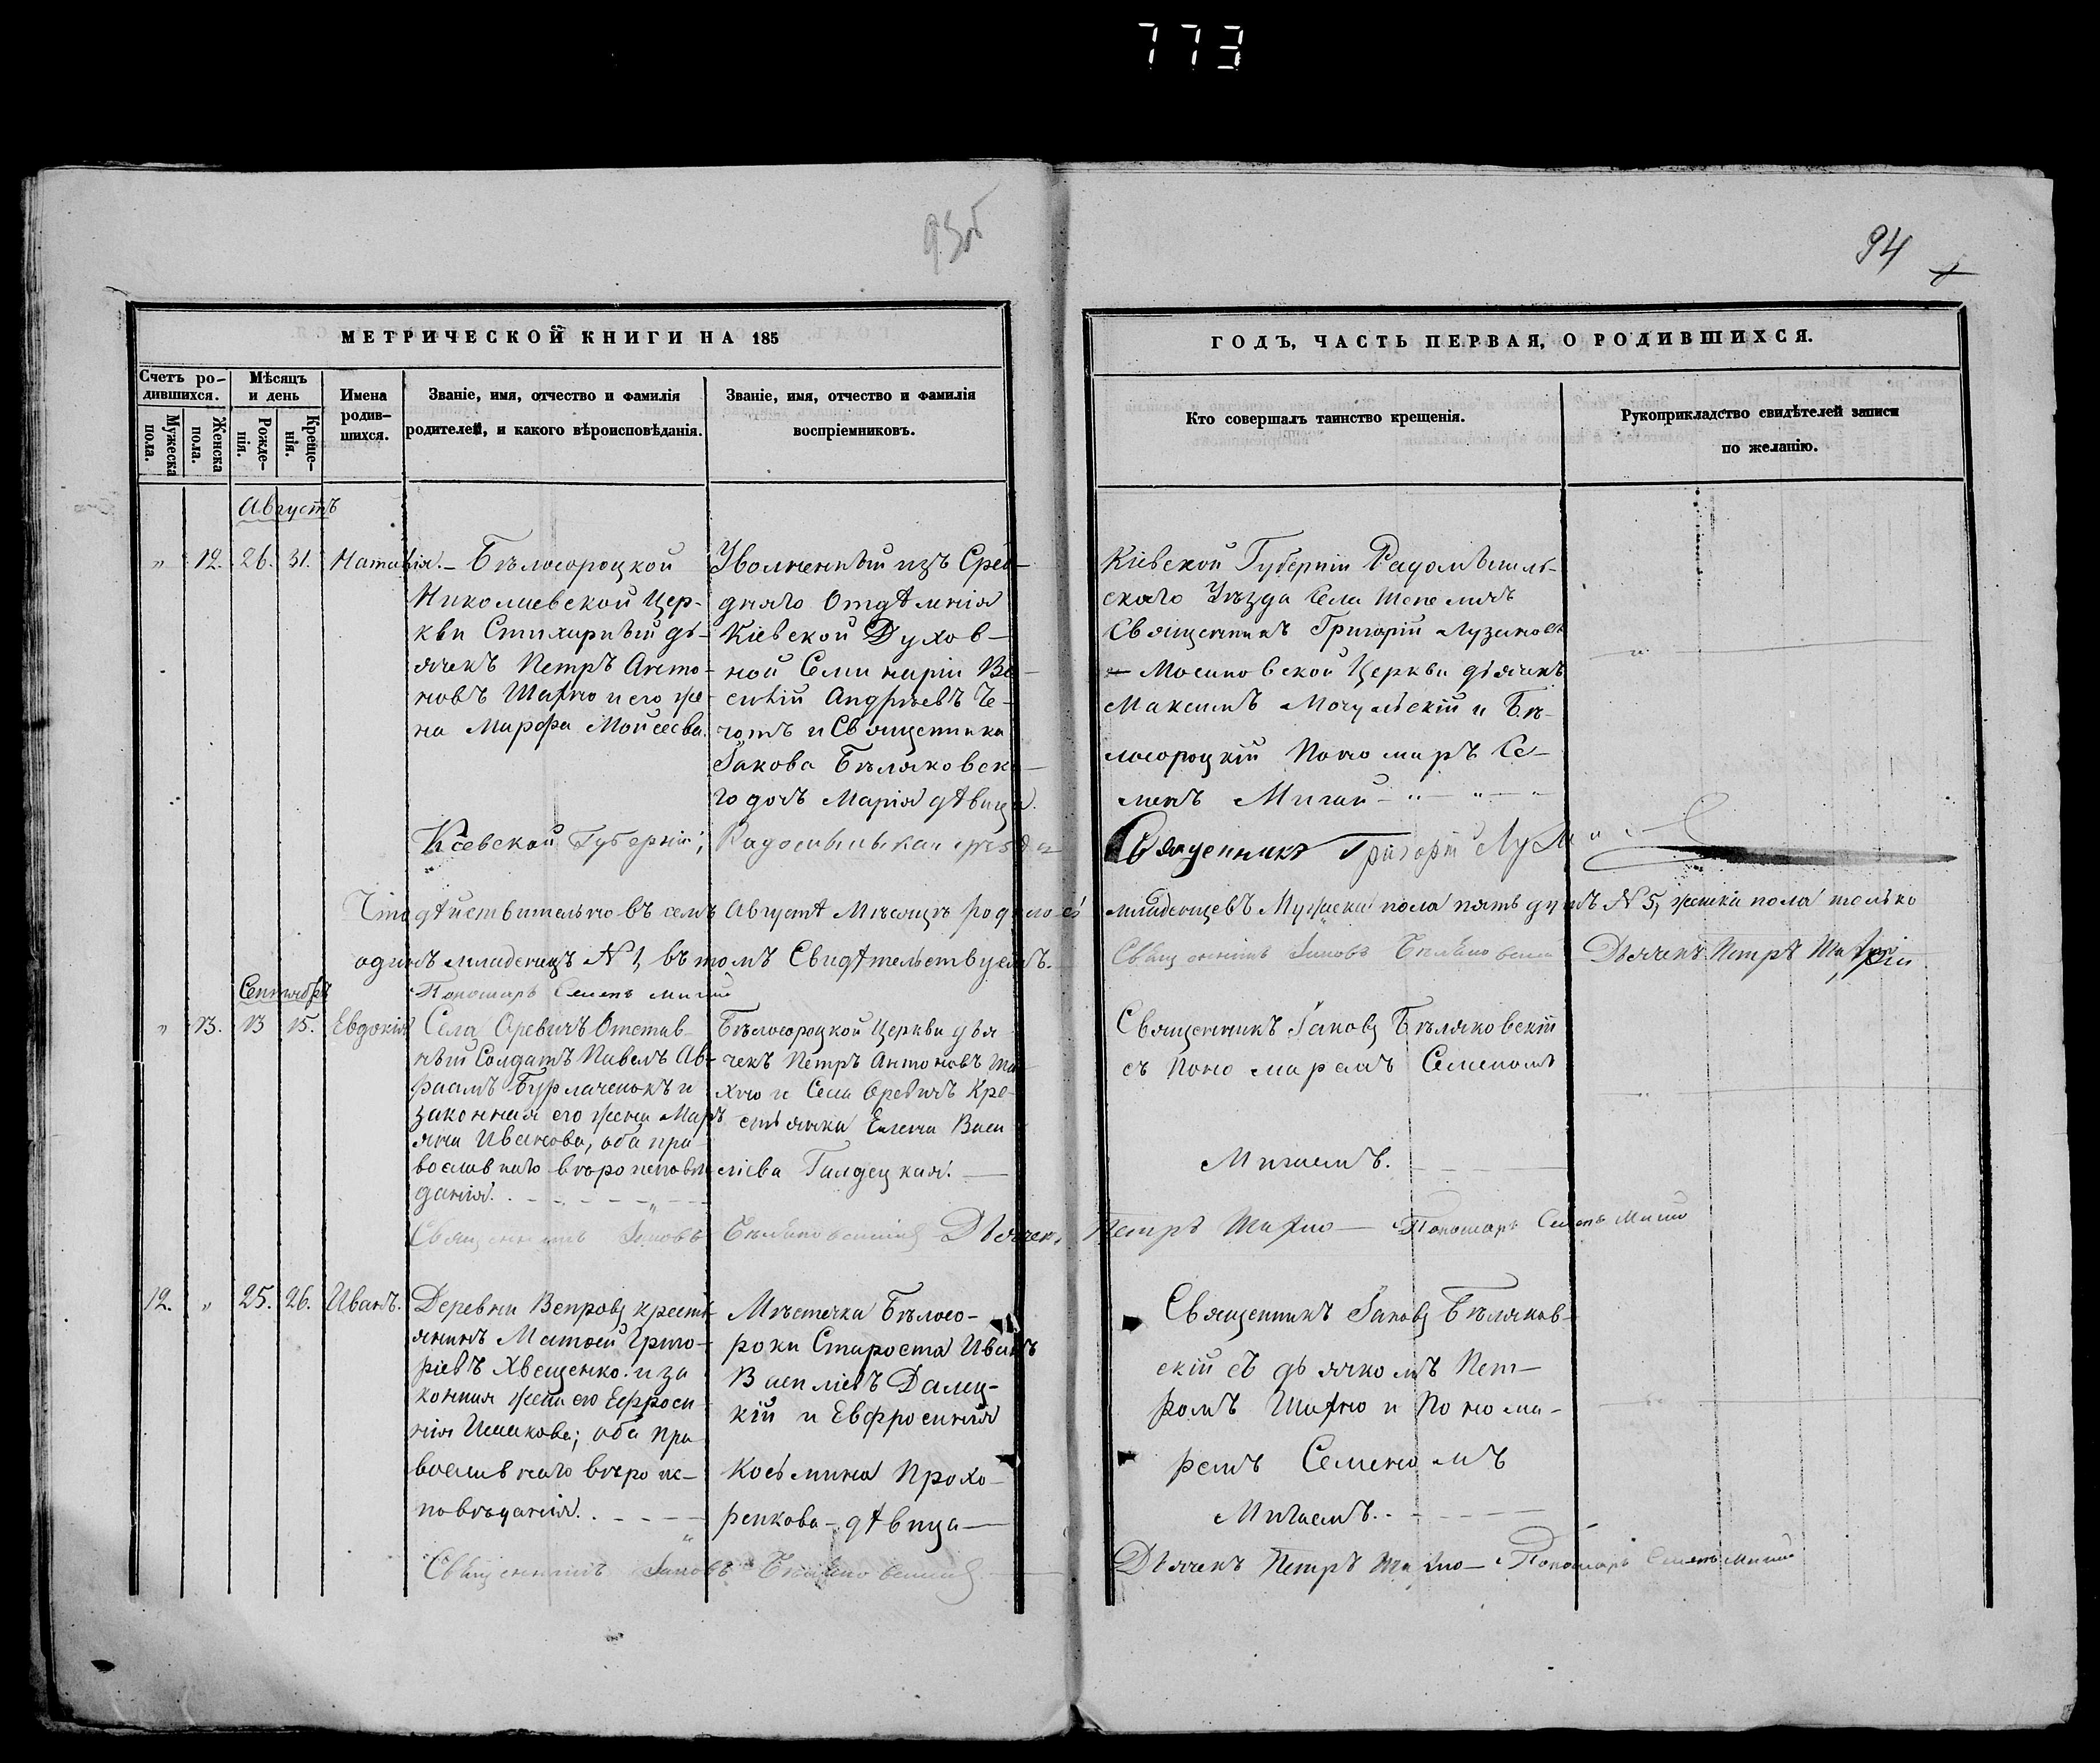 773
93об
94
МЕТРИЧЕСКОЙ КНИГИ НА 185
Счетъ ро-
дившихся.
Мѣсяцъ
и день
Имена
родив-
шихся.
Званіе, имя, отчество и фамилія
родителей, и какого вѣроисповѣданія.
Званіе, имя, отчество и фамилія
воспріемниковъ.
Мужеска
пола.
Женска
пола.
Рожде-
нія.
Креще-
нія.
ГОДЪ, ЧАСТЬ ПЕРВАЯ, О РОДИВШИХСЯ.
Кто совершалъ таинство крещенія.
Рукоприкладство свидѣтелей записи
по желанію.
Августъ
" 12. 26. 31. Наталія.
Бѣлосороцкой
Николаевской Цер-
кви Стихарный дь-
ячекъ Петръ Анто-
новъ Шахно и его же-
на Марфа Моисеева.
Уволненный изъ Сред-
дняго Отдѣленія
Кіевской Духов-
ной Семинаріи Ва-
силій Андреевъ Че-
чотъ и Священника
Іакова Бѣляковска-
го дочь Марія дѣвица.
Кіевской Губерніи Радомысль-
скаго Уѣзда Села
Священникъ Григорій Лузановъ
Церкви дьячекъ
Максимъ Мочульскій и Бѣ-
лосороцкій Пономарь Се-
менъ Мигай - " - " -
Кіевской Губерніи,
Священникъ Григорій
Что дѣйствительно въ семъ Августѣ Мѣсяцѣ родилось младенцевъ Мужеска пола пять душъ N 5, женска пола только
одинъ младенецъ N 1, въ томъ Свидѣтельствуемъ.
Священникъ Іаковъ Бѣляковскій Дьячекъ Петръ Шахно
Пономарь Семенъ Мигай
Сентябрь
" 13. 13 15. Евдокія
Села Оревичъ Отстав-
ный Солдатъ Павелъ Ав-
раамъ Бурлаченокъ и
законная его жена Марь
яна Иванова, оба пра
вославнаго вѣроисповѣ
данія.
Бѣлосороцкой Церкви дья
чекъ Петръ Антоновъ Ша-
хно и Села Оревичъ Кре-
стьянка Елена Васи
ліева Галдецкая.
Священникъ Іаковъ Бѣляковскій
съ Пономаремъ Семеномъ
Мигаемъ.
Священникъ Іаковъ Бѣляковскій Дьячекъ Петръ Шахно - Пономарь Семенъ Мигай
12. " 25. 26. Иванъ.
Деревни Вепровъ кресть
янинъ Матѳей Григо-
ріевъ Хвещенко и за
конная жена его Ефроси
нія Исаакова; оба пра
вославнаго вѣроис-
повѣданія.
Мѣстечка Бѣлосо-
роки Староста Иванъ
Василіевъ Далец-
кій и Евфросинія
Косьмина Прохо-
ренкова - дѣвица
Священникъ Іаковъ Бѣляков-
скій съ дьячкомъ Пет-
ромъ Шахно и Понома-
ремъ Семеномъ
Мигаемъ.
Священникъ Іаковъ Бѣляковскій Дьячекъ Петръ Шахно - Пономарь Семенъ Мигай